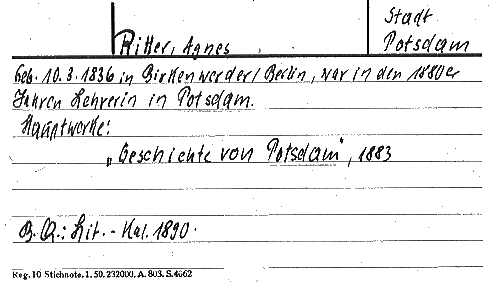 Ritter, Agnes
Stadt
Potsdam
Geb. 10.3.1836 in Birkenwerder/Berlin, war in den 1880er
Jahren Lehrerin in Potsdam.
Hauptwerke:
„Geschichte von Potsdam", 1883
B.Q.: Lit.-Kal. 1890.
Reg. 10 Stichnote. 1. 50. 232000. A. 803. S. 4662